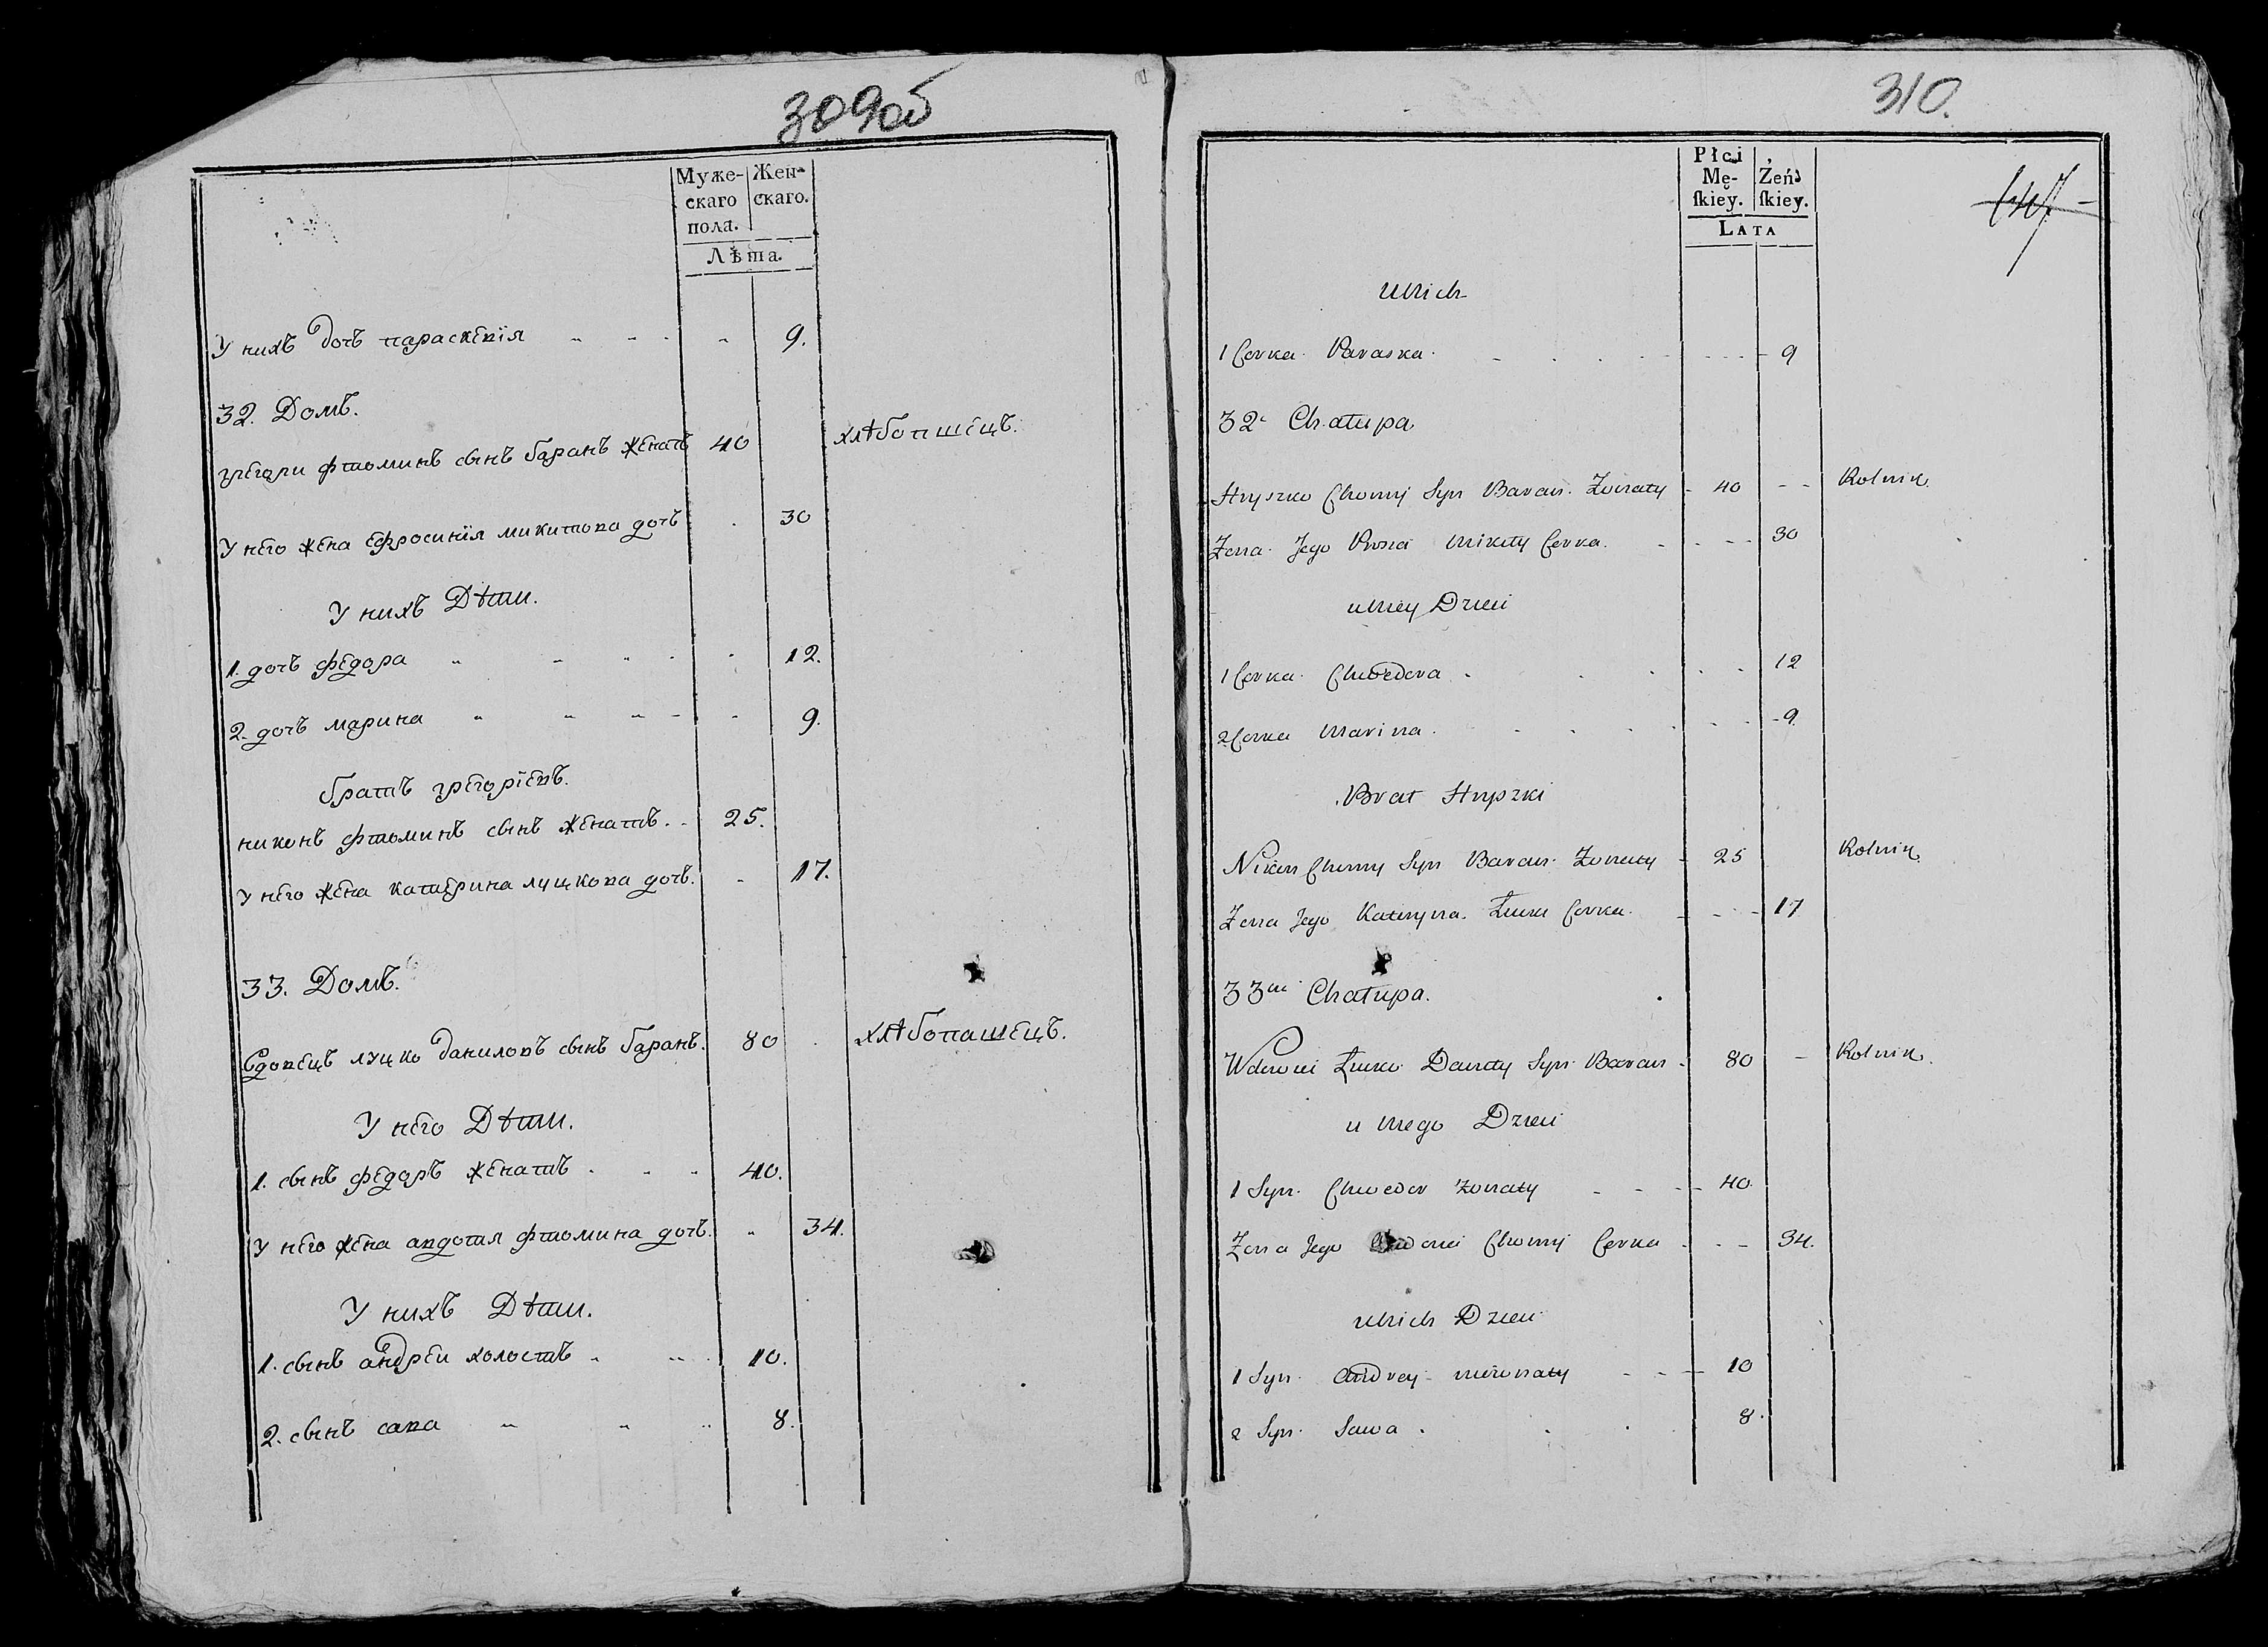 309об
Муже-
скаго
пола.
Жен-
скаго.
Лѣта.
У нихъ дочь параскевия 9.
32. Домъ.
грегори фтоминъ сынъ баранъ женатъ 40 хлѣбопшецъ.
У него жена ефросинїя микитова дочь 30
У нихъ Дѣти.
1. дочь федора 12.
2. дочь марина 9.
братъ грегорїевъ.
никонъ фтоминъ сынъ женатъ. 25.
У него жена катерина луцкова дочь. 17.
33. Домъ.
Вдовецъ луцко даниловъ сынъ баранъ. 80 хлѣбопашецъ.
У него Дѣти.
1. сынъ федоръ женатъ 40.
У него жена авдотия фтомина дочь. 34.
У нихъ Дѣти.
1. сынъ андреи холостъ 10.
2. сынъ сава 8.
310.
Płci
Mę-
ſkiey.
Żeń
ſkiey.
LATA
U Nich
1 Corka Paraska 9
32a Chałupa
Hryszko Chomy Syn Baran Żonaty 40 Rolnik
Żona Jego Prosia Mikity Corka. 30
u Niey Dzieci
1 Corka Chwedora 12
2 Corka Marina 9
Brat Hryszki
Nikon Chomy Syn Baran Żonaty 25 Rolnik
Żona Jego Kateryna Łucki Corka. 17
33cia Chałupa.
Wdowiec Łucko Daniły Syn Baran 80 Rolnik.
u Niego Dzieci
1 Syn Chwedor Żonaty 40
Żona Jego Chomy Corka 34.
u Nich Dzieci
1 Syn Andrey nieżonaty 10
2 Syn Sawa 8.